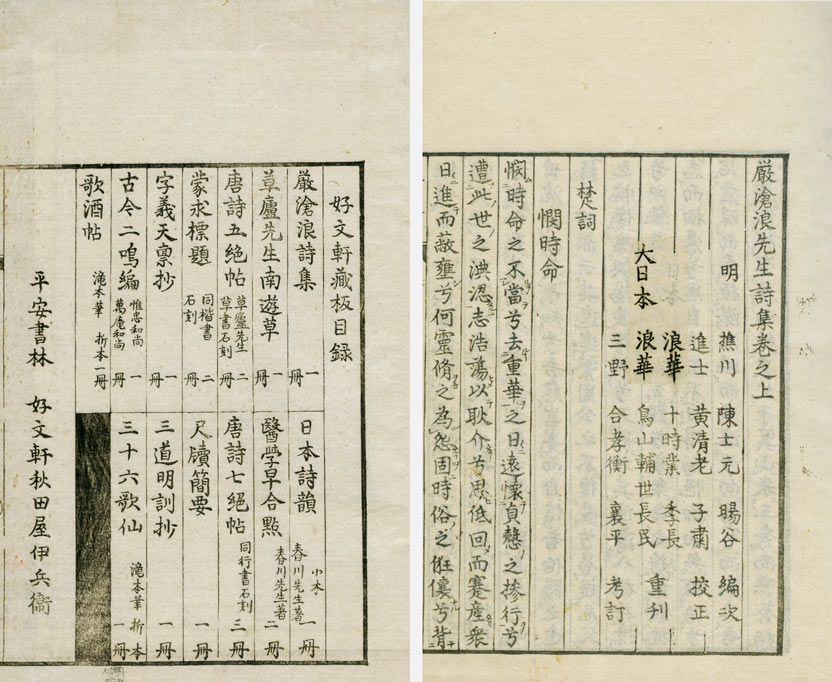 嚴滄浪先生詩集卷之上
明 樵川 陳士元 暘谷 編次
進士 黃清老 子肅 校正
浪華 十時業 季長
大日本 浪華 鳥山輔世長民 重刊
三野 合孝衡 襄平 考訂
楚詞
憫時命
憫時命之不當兮去重華之日遠懷貞慤之摻行兮
遭此世之淟涊志浩蕩以耿介兮思低回而蹇產衆
日進而蔽壅兮何靈脩之為怨固時俗之俇儴兮背
好文軒藏板目録
嚴滄浪詩集 一冊
日本詩韻 小本 一冊
草廬先生南遊草 一冊
醫學早合點 春川先生著 二冊
唐詩五絕帖 草廬先生草書石刻 二冊
唐詩七絕帖 同行書石刻 三冊
蒙求標題 同楷書石刻 二冊
尺牘簡要 一冊
字義天禀抄 一冊
三道明訓抄 一冊
古今二鳴編 惟忠和尚 萬庵和尚 一冊
三十六歌仙 滝本筆 折本 一冊
歌酒帖 滝本筆 折本一冊
平安書林 好文軒秋田屋伊兵衞